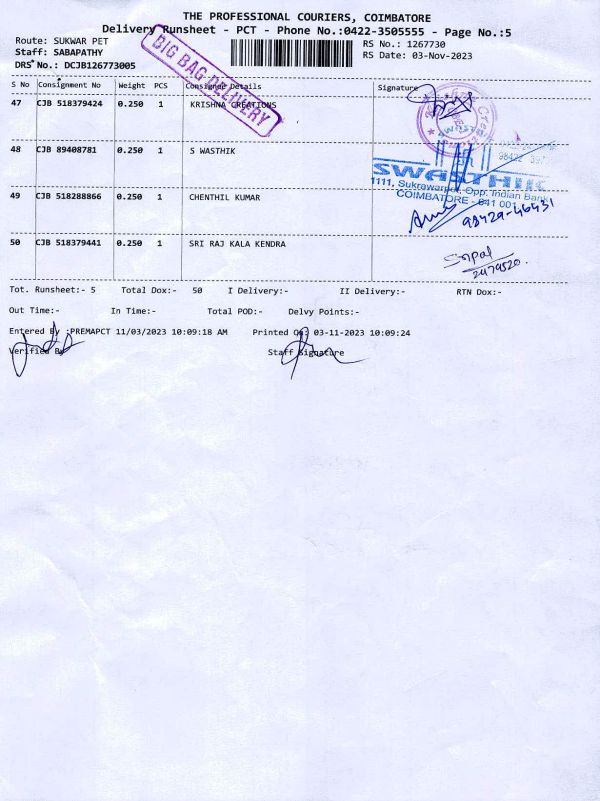 THE PROFESSIONAL COURIERS, COIMBATORE
Delivery Runsheet - PCT - Phone No.:0422-3505555 - Page No.:5
Route: SUKWAR PET
RS No.: 1267730
Staff: SABAPATHY
RS Date: 03-Nov-2023
DRS No.: DCJB126773005
BIG BAG DELIVERY
S No Consignment No Weight PCS Consignee Details Signature
47 CJB 518379424 0.250 1 KRISHNA CREATIONS
48 CJB 89408781 0.250 1 S WASTHIK
98422
SWASTHIK
1111, Sukrawarpet, Opp. Indian Bank
COIMBATORE - 641 001
49 CJB 518288866 0.250 1 CHENTHIL KUMAR
98429-46431
50 CJB 518379441 0.250 1 SRI RAJ KALA KENDRA
2479520.
Tot. Runsheet:- 5 Total Dox:- 50 I Delivery:- II Delivery:- RTN Dox:-
Out Time:- In Time:- Total POD:- Delvy Points:-
Entered By :PREMAPCT 11/03/2023 10:09:18 AM Printed On: 03-11-2023 10:09:24
Verified By Staff Signature